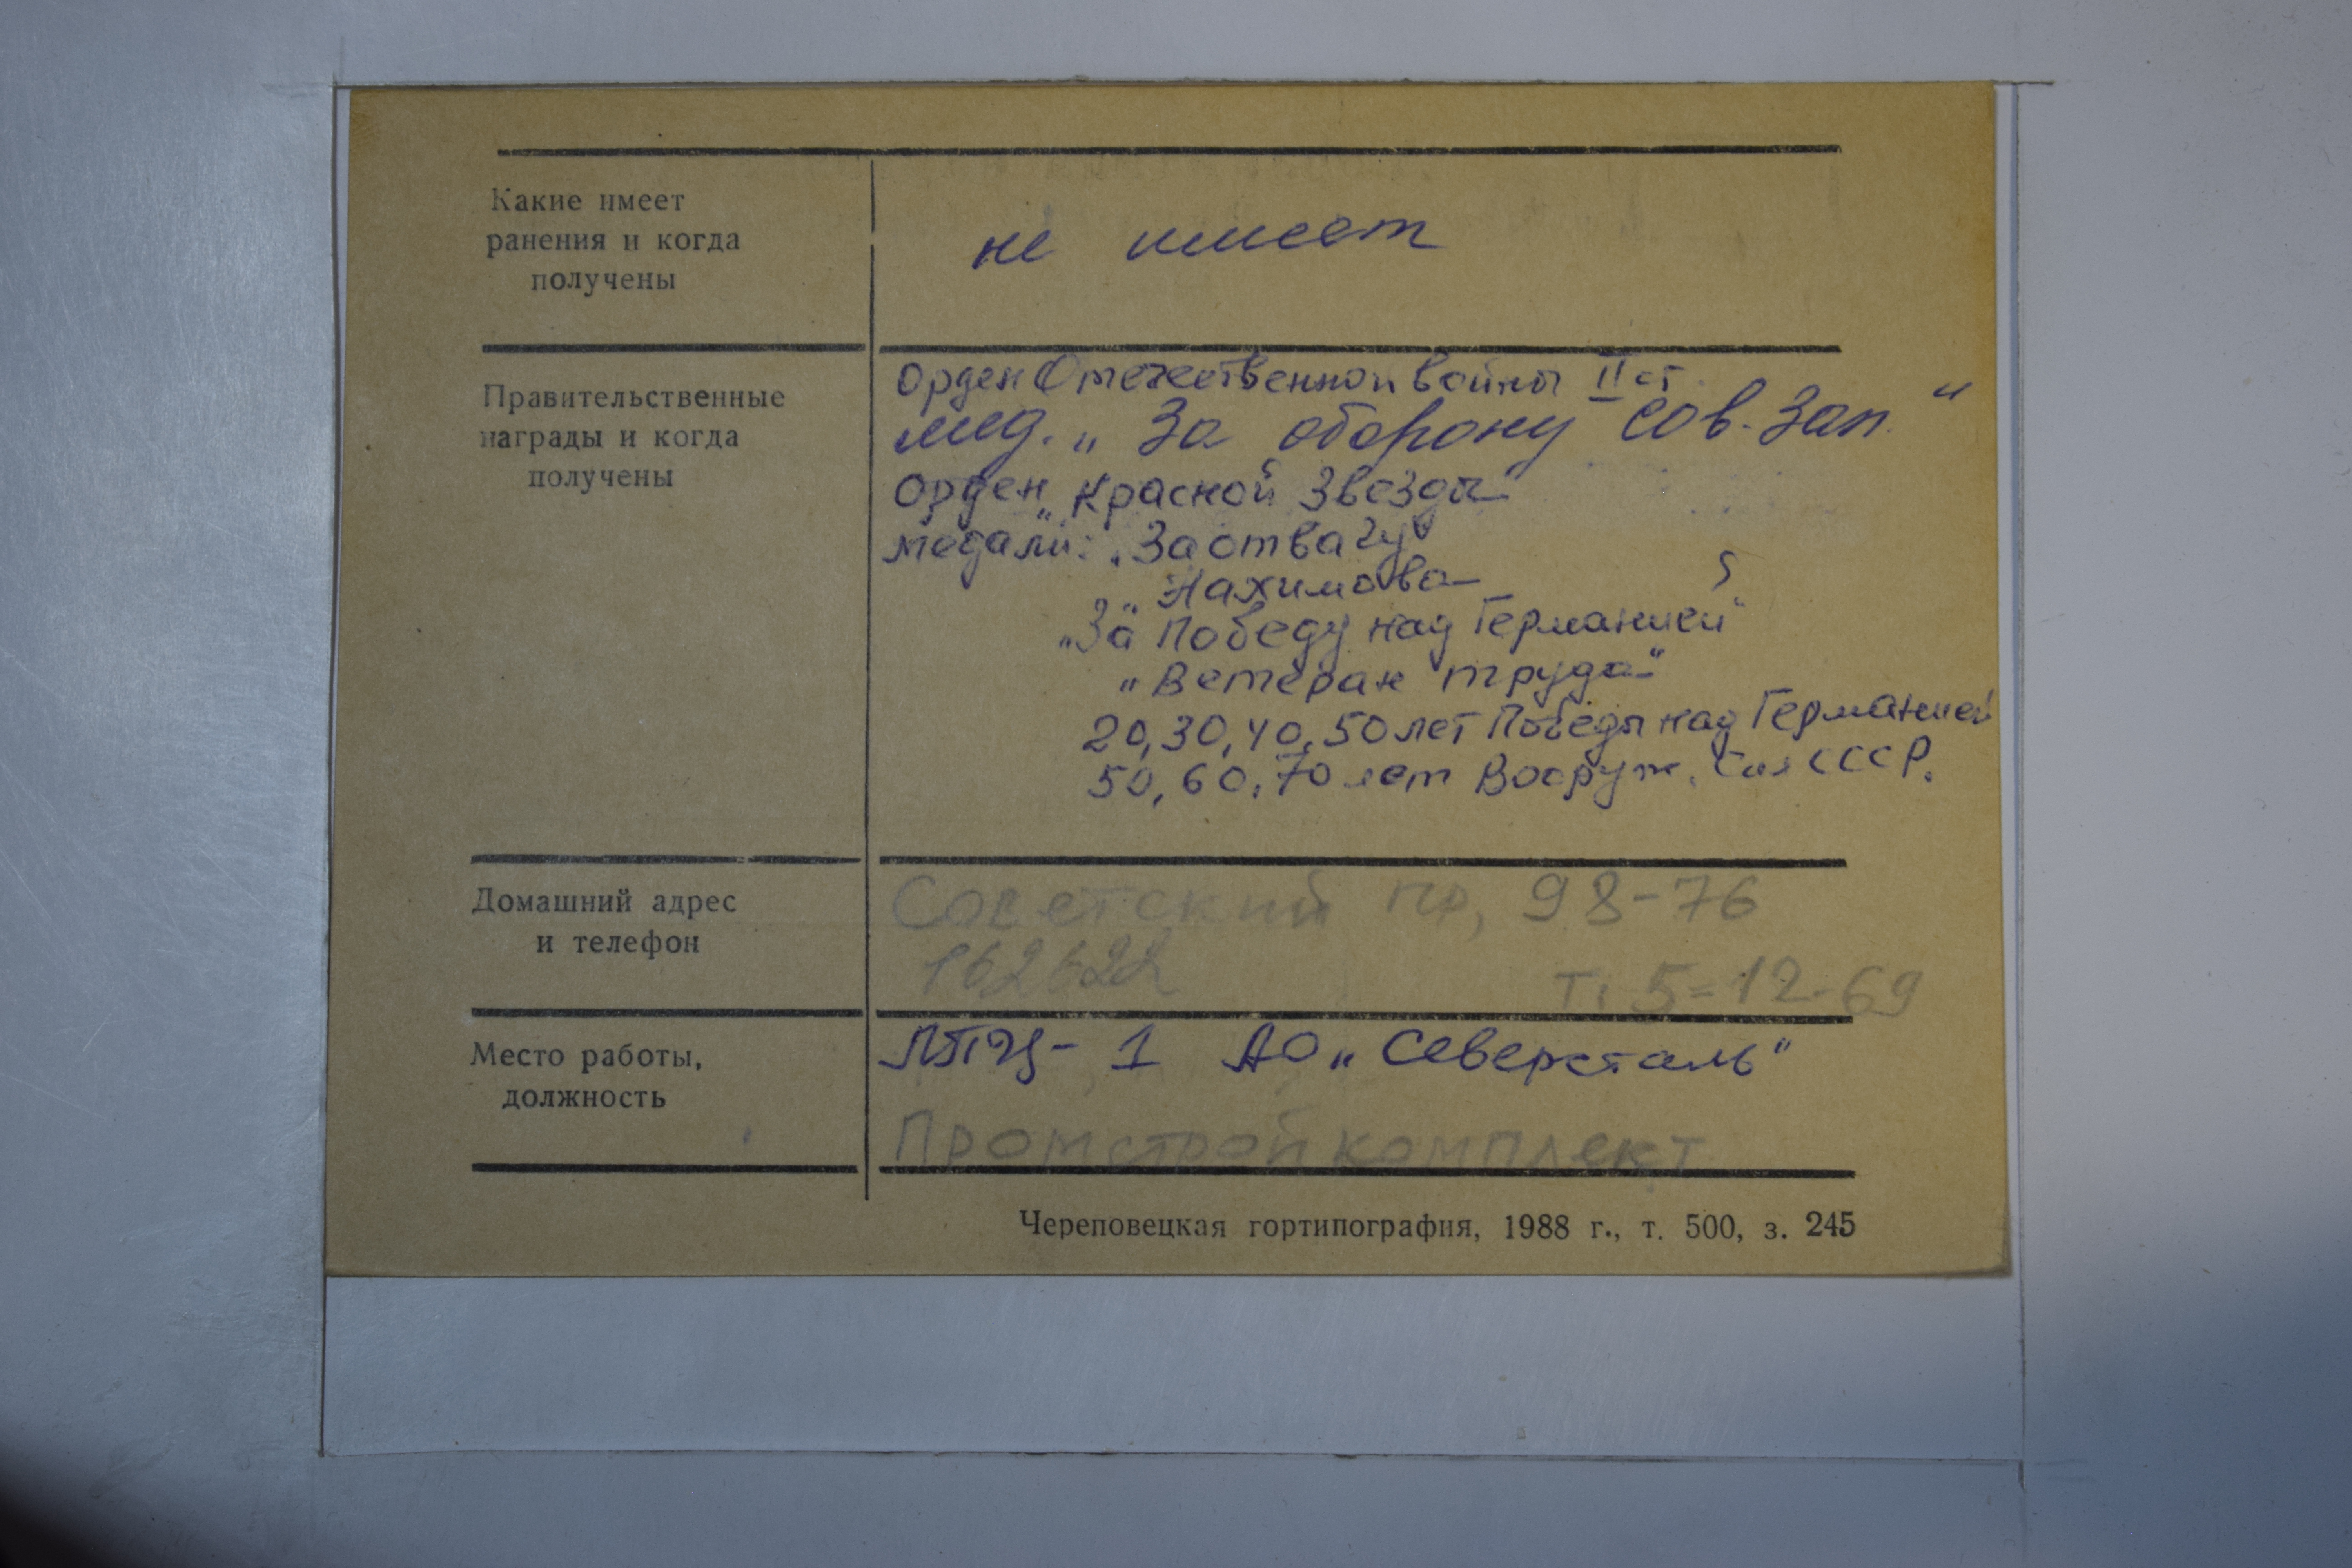 Какие имеет
ранения и когда
получены
не имеет
Правительственные
награды и когда
получены
Орден Отечественной войны II ст.
мед. „За оборону Сов. Зап."
Орден „Красной Звезды"
медали: „За отвагу"
„Нахимова"
„За Победу над Германией"
„Ветеран труда"
20, 30, 40, 50 лет Победы над Германией
50, 60, 70 лет Вооруж. Сил СССР.
Домашний адрес
и телефон
Советский пр, 98-76
162622
т. 5-12-69
Место работы,
должность
ЛПЦ-1 АО „Северсталь"
Промстройкомплект
Череповецкая гортипография, 1988 г., т. 500, з. 245